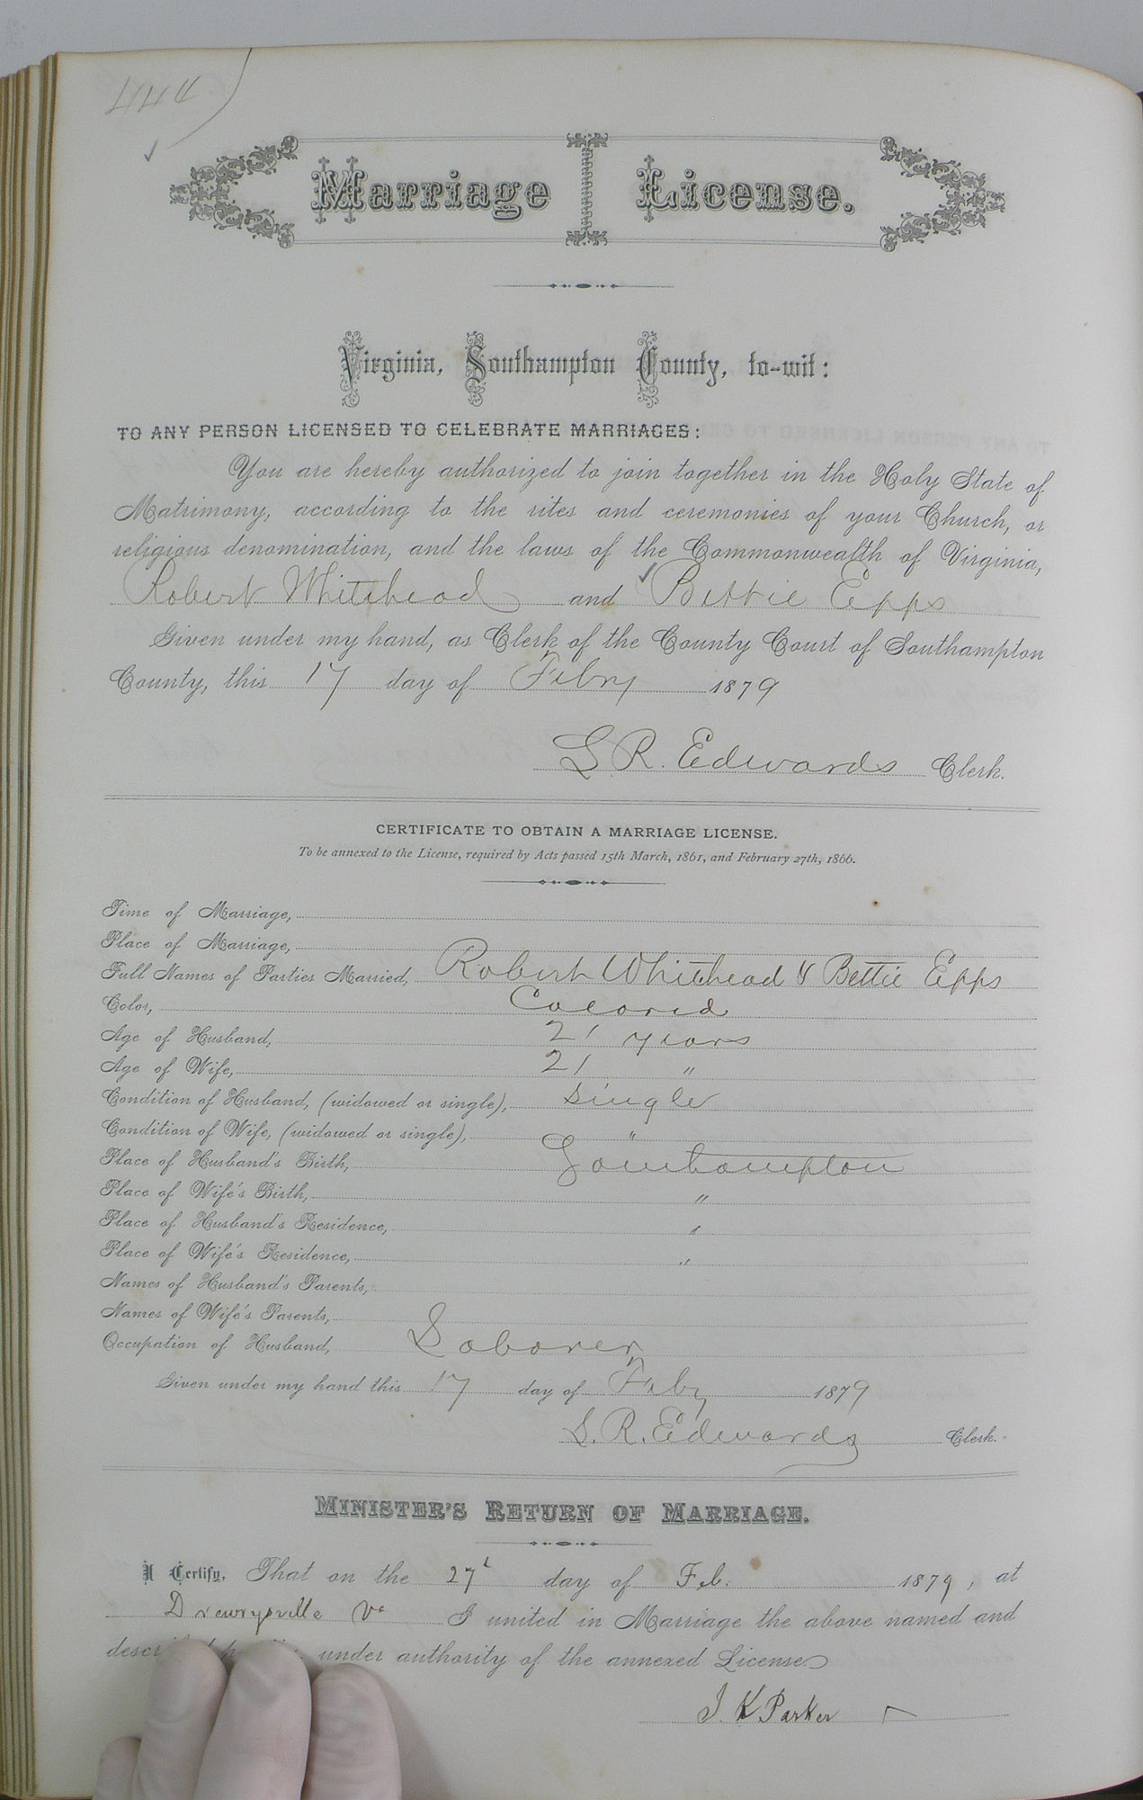 444
Marriage License.
Virginia, Southampton County, to-wit:
TO ANY PERSON LICENSED TO CELEBRATE MARRIAGES:
You are hereby authorized to join together in the Holy State of
Matrimony, according to the rites and ceremonies of your Church, or
religious denomination, and the laws of the Commonwealth of Virginia,
Robert Whitehead and Bettie Epps
Given under my hand, as Clerk of the County Court of Southampton
County, this 17 day of Feby 1879
L. R. Edwards Clerk.
CERTIFICATE TO OBTAIN A MARRIAGE LICENSE.
To be annexed to the License, required by Acts passed 15th March, 1861, and February 27th, 1866.
Time of Marriage,
Place of Marriage,
Full Names of Parties Married, Robert Whitehead & Bettie Epps
Color, Colored
Age of Husband, 21 years
Age of Wife, 21 "
Condition of Husband, (widowed or single), Single
Condition of Wife, (widowed or single), "
Place of Husband's Birth, Southampton
Place of Wife's Birth, "
Place of Husband's Residence, "
Place of Wife's Residence, "
Names of Husband's Parents,
Names of Wife's Parents,
Occupation of Husband, Laborer
Given under my hand this 17 day of Feby 1879
L. R. Edwards Clerk.
MINISTER'S RETURN OF MARRIAGE.
I Certify, That on the 27t day of Feb. 1879, at
Drewrysville Va I united in Marriage the above named and
under authority of the annexed License
J. K Parker